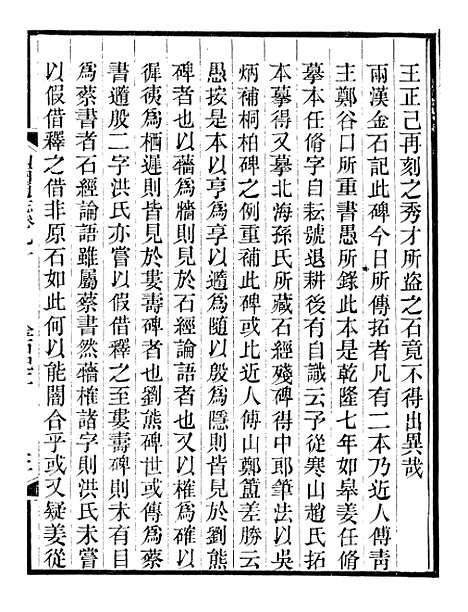 王正己再刻之秀才所盜之石竟不得出異哉
兩漢金石記此碑今日所傳拓者凡有二本乃近人傅青
主鄭谷口所重書愚所錄此本是乾隆七年如皋姜任脩
摹本任脩字自耘號退耕後有自識云予從寒山趙氏拓
本摹得又摹北海孫氏所藏石經殘碑得中郎筆法以吳
炳補桐柏碑之例重補此碑或比近人傅山鄭簠差勝云
愚按是本以亨爲享以遹爲隨以殷爲隱則皆見於劉熊
碑者也以蘠爲牆則見於石經論語者也以榷爲確以
徲徚爲栖遲則皆見於婁壽碑者也劉熊碑世或傳爲蔡
書遹殷二字洪氏亦嘗以假借釋之至婁壽碑則未有目
爲蔡書者石經論語雖屬蔡書然蘠榷諸字則洪氏未嘗
以假借釋之借非原石如此何以能闇合乎或又疑姜從